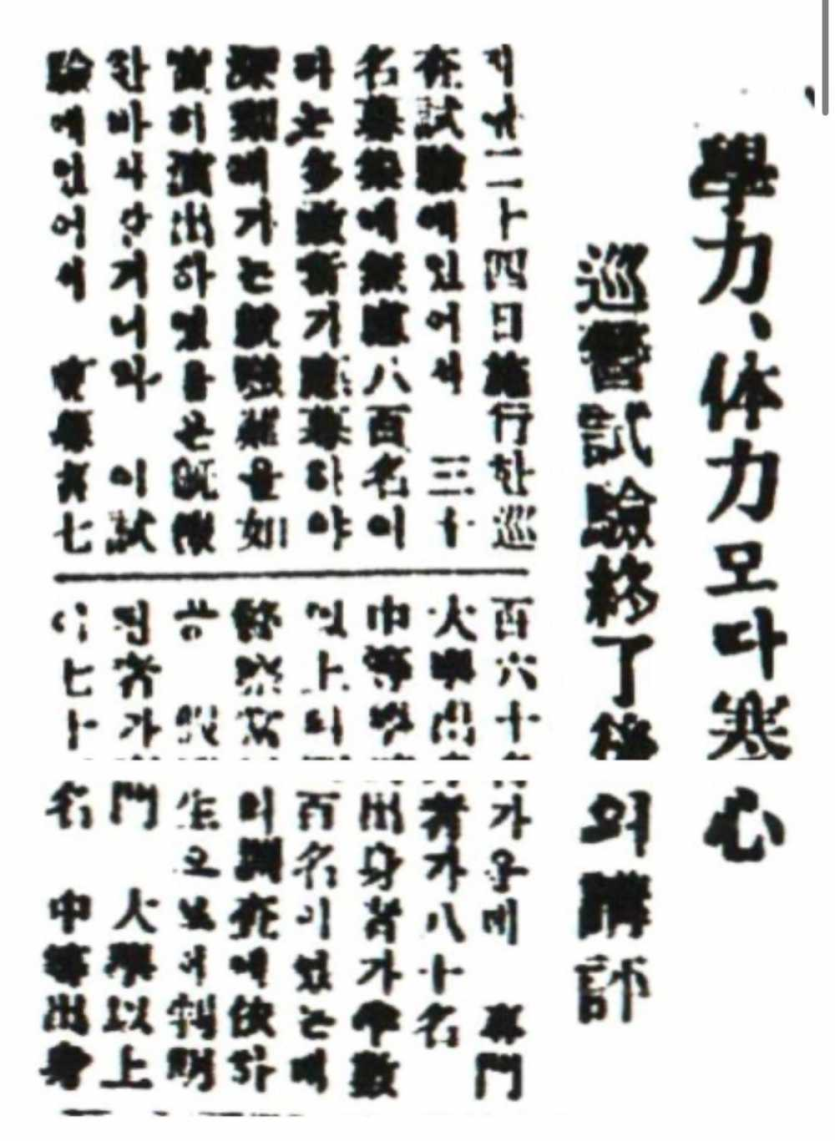 學力、体力모다寒心
巡警試驗終了後의講評
지난二十四日施行한巡
査試驗에있어서 三十
名募集에無慮八百名이
라는多數者가應募하야
深刻해가는就職難을如
實히演出하였음은旣報
한바와같거니와 이試
驗에있어서 受驗者七
百六十名가운데 專門
大學出身者가八十名
中等學校出身者가半數
百名이었는데
警察當局의調査에依하
判明
된者가 門 大學以上
이七十 名 中等出身